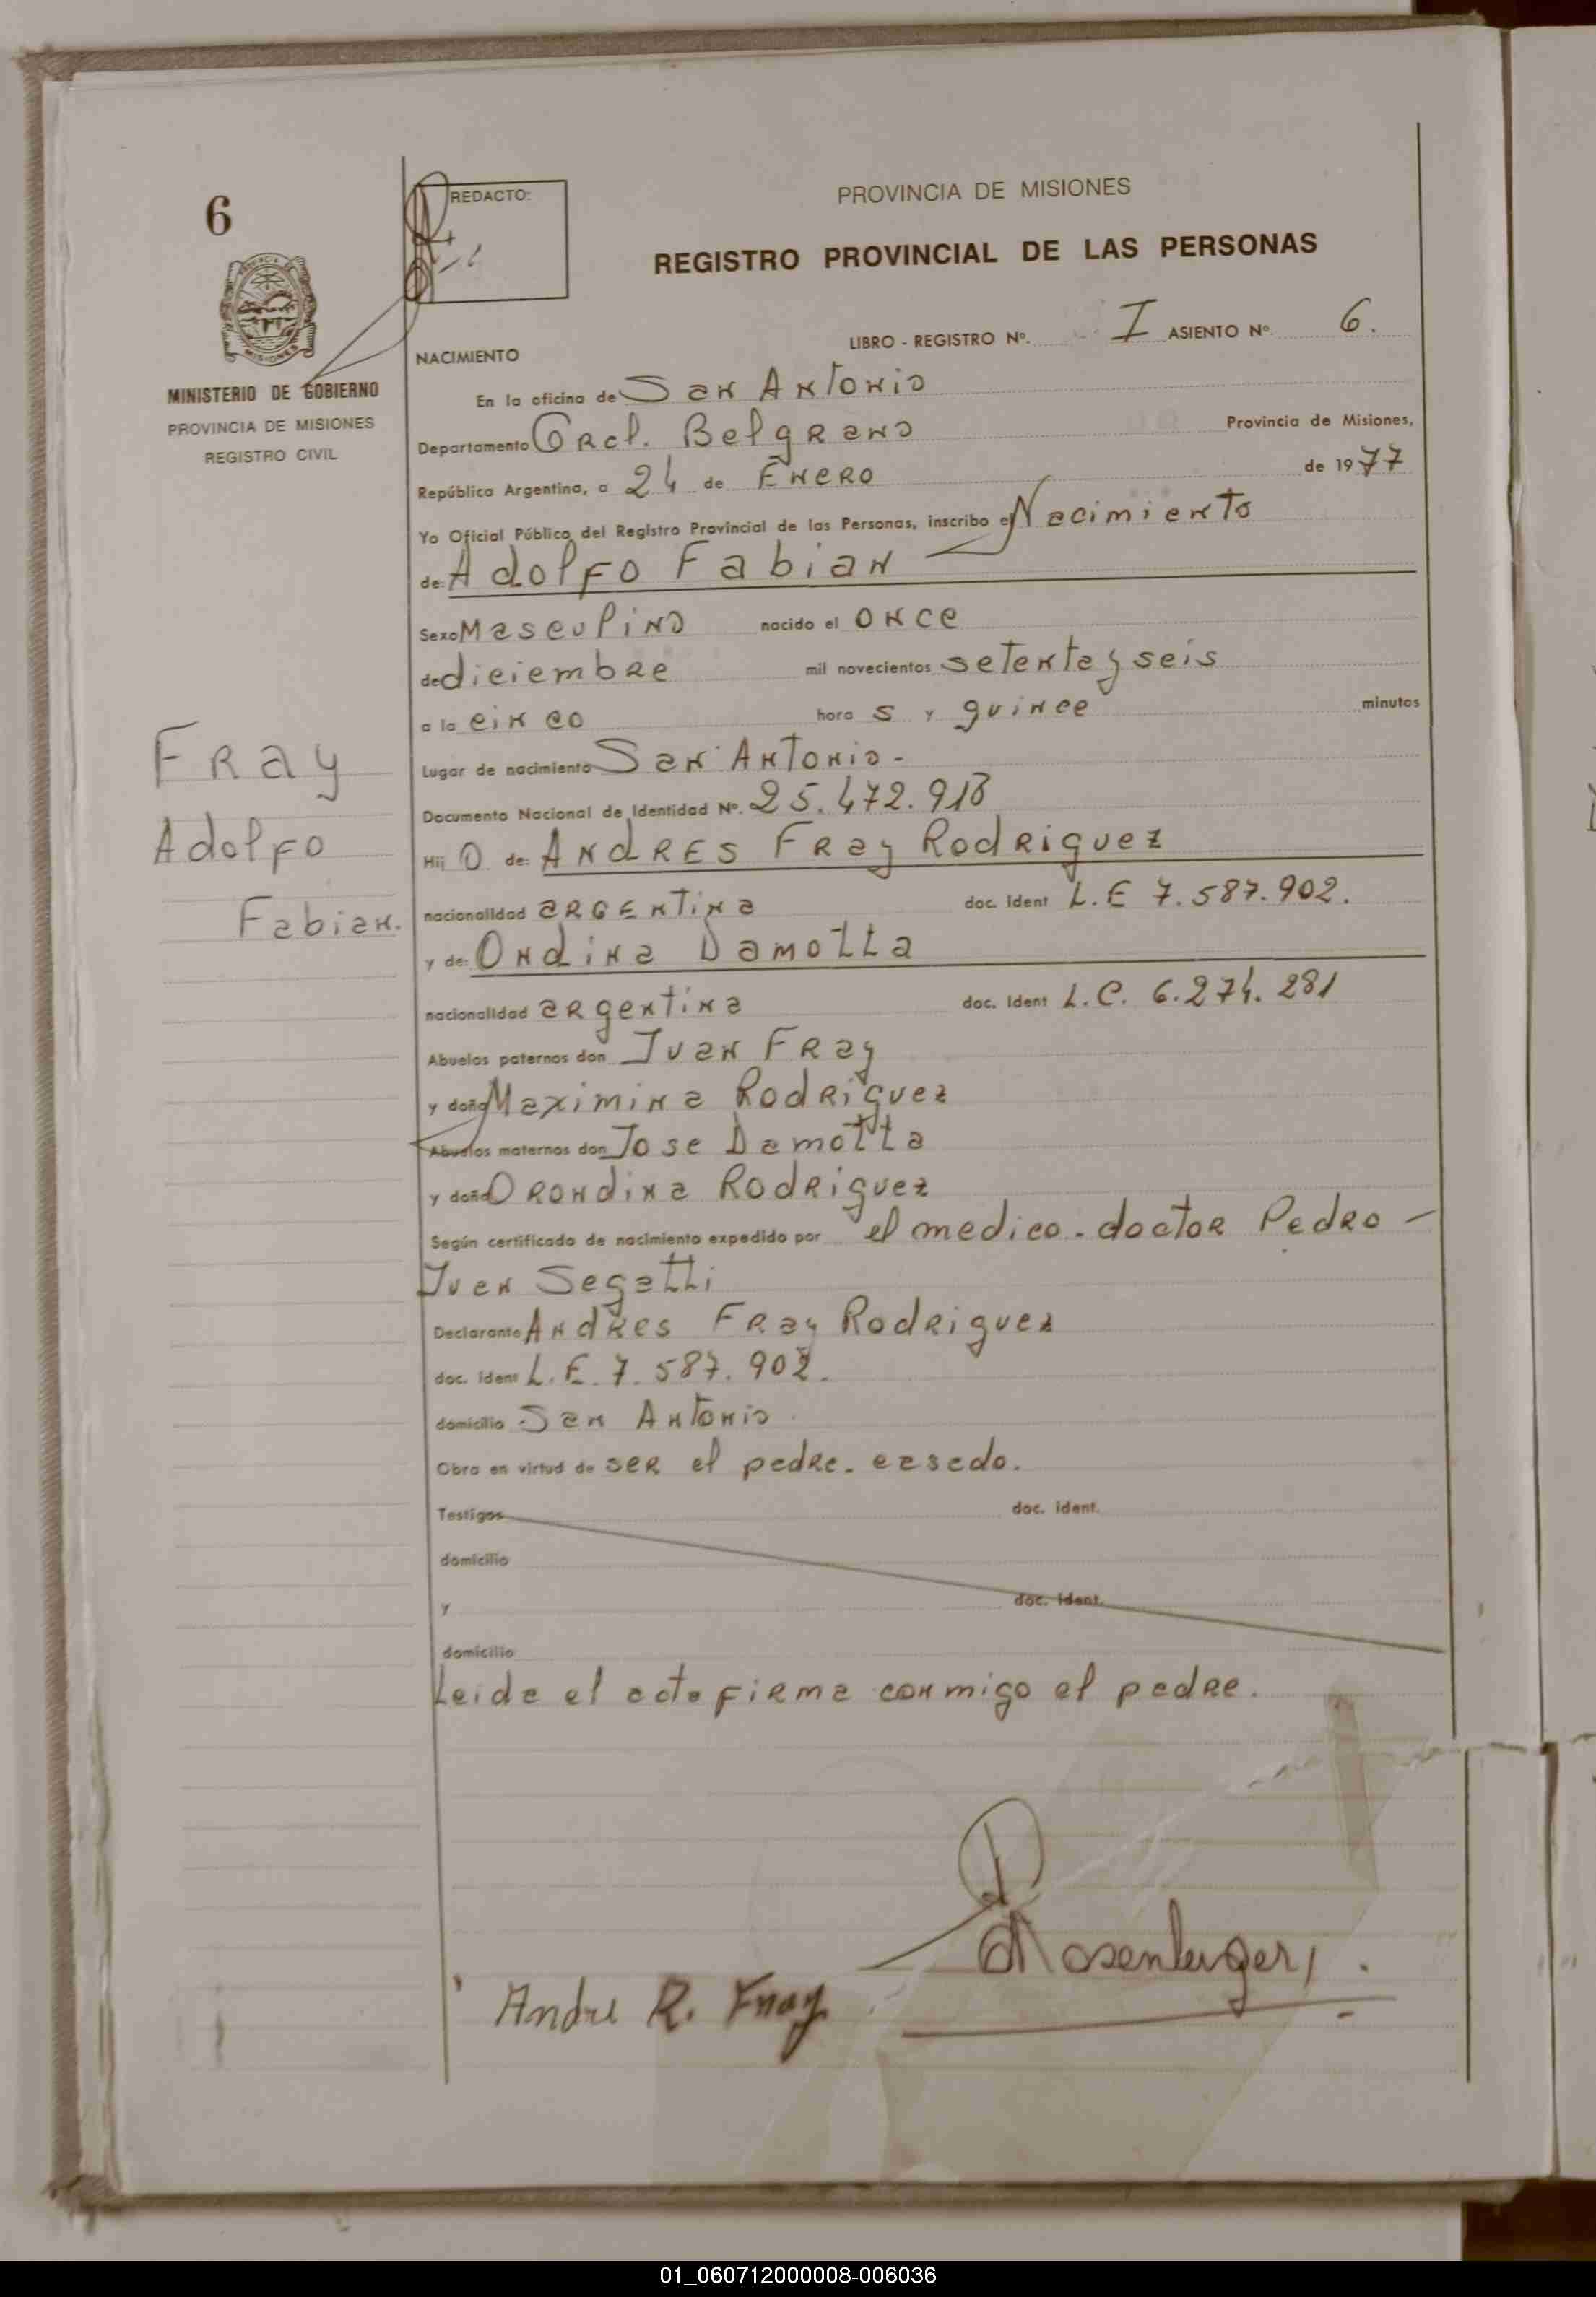 6
REDACTO:
PROVINCIA DE MISIONES
REGISTRO PROVINCIAL DE LAS PERSONAS
LIBRO - REGISTRO Nº. I ASIENTO Nº 6.
NACIMIENTO
MISIONES
MINISTERIO DE GOBIERNO
PROVINCIA DE MISIONES
REGISTRO CIVIL
En la oficina de San Antonio
Departamento Gral. Belgrano Provincia de Misiones,
República Argentina, a 24 de Enero de 1977
Yo Oficial Público del Registro Provincial de las Personas, inscribo el Nacimiento
de: Adolfo Fabian
Sexo Masculino nacido el once
de diciembre mil novecientos setenta y seis
a la cinco hora s y quince minutos
Fray
Adolfo
Fabian.
Lugar de nacimiento San Antonio -
Documento Nacional de Identidad Nº. 25.472.918
Hij o de: Andres Fray Rodriguez
nacionalidad argentina doc. Ident L.E 7.587.902.
y de: Ondina Damotta
nacionalidad argentina doc. Ident L.C. 6.274.281
Abuelos paternos don Juan Fray
y doña Maximina Rodriguez
Abuelos maternos don Jose Damotta
y doña Orondina Rodriguez
Según certificado de nacimiento expedido por el medico - doctor Pedro -
Juan Segatti
Declarante Andres Fray Rodriguez
doc. ident L.E. 7.587.902.
domicilio San Antonio.
Obra en virtud de ser el padre - casado.
Testigos doc. ident.
domicilio
y doc. ident.
domicilio
Leida el acta firma conmigo el padre.
Andre R. Fray
01_060712000008-006036